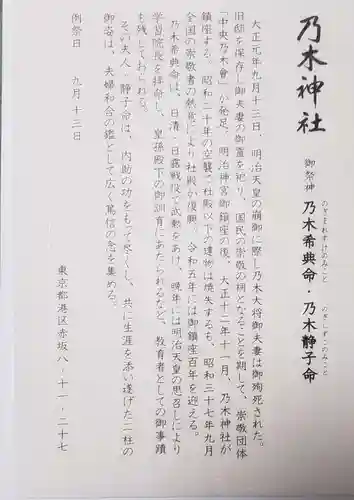 乃木神社
御祭神 乃木希典命・乃木静子命
のぎまれすけのみこと
のぎしずこのみこと
大正元年九月十三日、明治天皇の崩御に際し乃木大将御夫妻は御殉死された。
旧邸を保存し御夫妻の御霊を祀り、国民の崇敬の的となることを期して、崇敬団体
「中央乃木會」が発足、明治神宮御鎮座の後、大正十二年十一月、乃木神社が
鎮座する。昭和二十年の空襲で社殿以下の建物は焼失するも、昭和三十七年九月
全国の崇敬者の熱意により社殿が復興。令和五年には御鎮座百年を迎える。
乃木希典命は、日清・日露戦役で武勲をあげ、晩年には明治天皇の思召しにより
学習院長を拝命し、皇孫殿下の御訓育にあたられるなど、教育者としての御事蹟
も残しておられる。
その夫人・静子命は、内助の功をもって尽くし、共に生涯を添い遂げた二柱の
御姿は、夫婦和合の鑑として広く篤信の念を集める。
例祭日 九月十三日
東京都港区赤坂八‐十一‐二十七